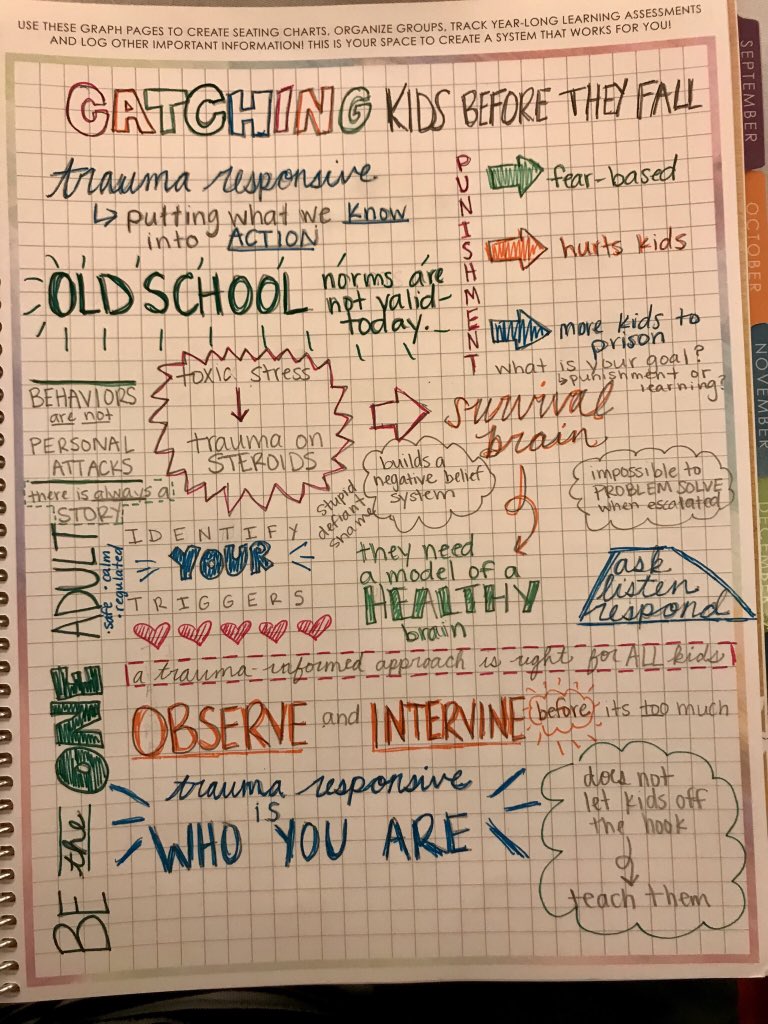 USE THESE GRAPH PAGES TO CREATE SEATING CHARTS, ORGANIZE GROUPS, TRACK YEAR-LONG LEARNING ASSESSMENTS
AND LOG OTHER IMPORTANT INFORMATION! THIS IS YOUR SPACE TO CREATE A SYSTEM THAT WORKS FOR YOU!
SEPTEMBER
OCTOBER
NOVEMBER
DECEMBER
CATCHING KIDS BEFORE THEY FALL
trauma responsive
↳ putting what we know
into ACTION
PUNISHMENT
fear-based
hurts kids
more kids to
prison
what is your goal?
↳ punishment or
learning?
OLD SCHOOL norms are
not valid
today.
BEHAVIORS
are not
PERSONAL
ATTACKS
there is always a
STORY
toxic stress
trauma on
STEROIDS
survival
brain
builds a
negative belief
system
stupid
defiant
shame
impossible to
PROBLEM SOLVE
when escalated
IDENTIFY
YOUR
TRIGGERS
they need
a model of a
HEALTHY
brain
ask
listen
respond
BE the ONE ADULT
·safe ·calm
·regulated
a trauma-informed approach is right for ALL kids
OBSERVE and INTERVINE before its too much
trauma responsive
is
WHO YOU ARE
does not
let kids off
the hook
teach them